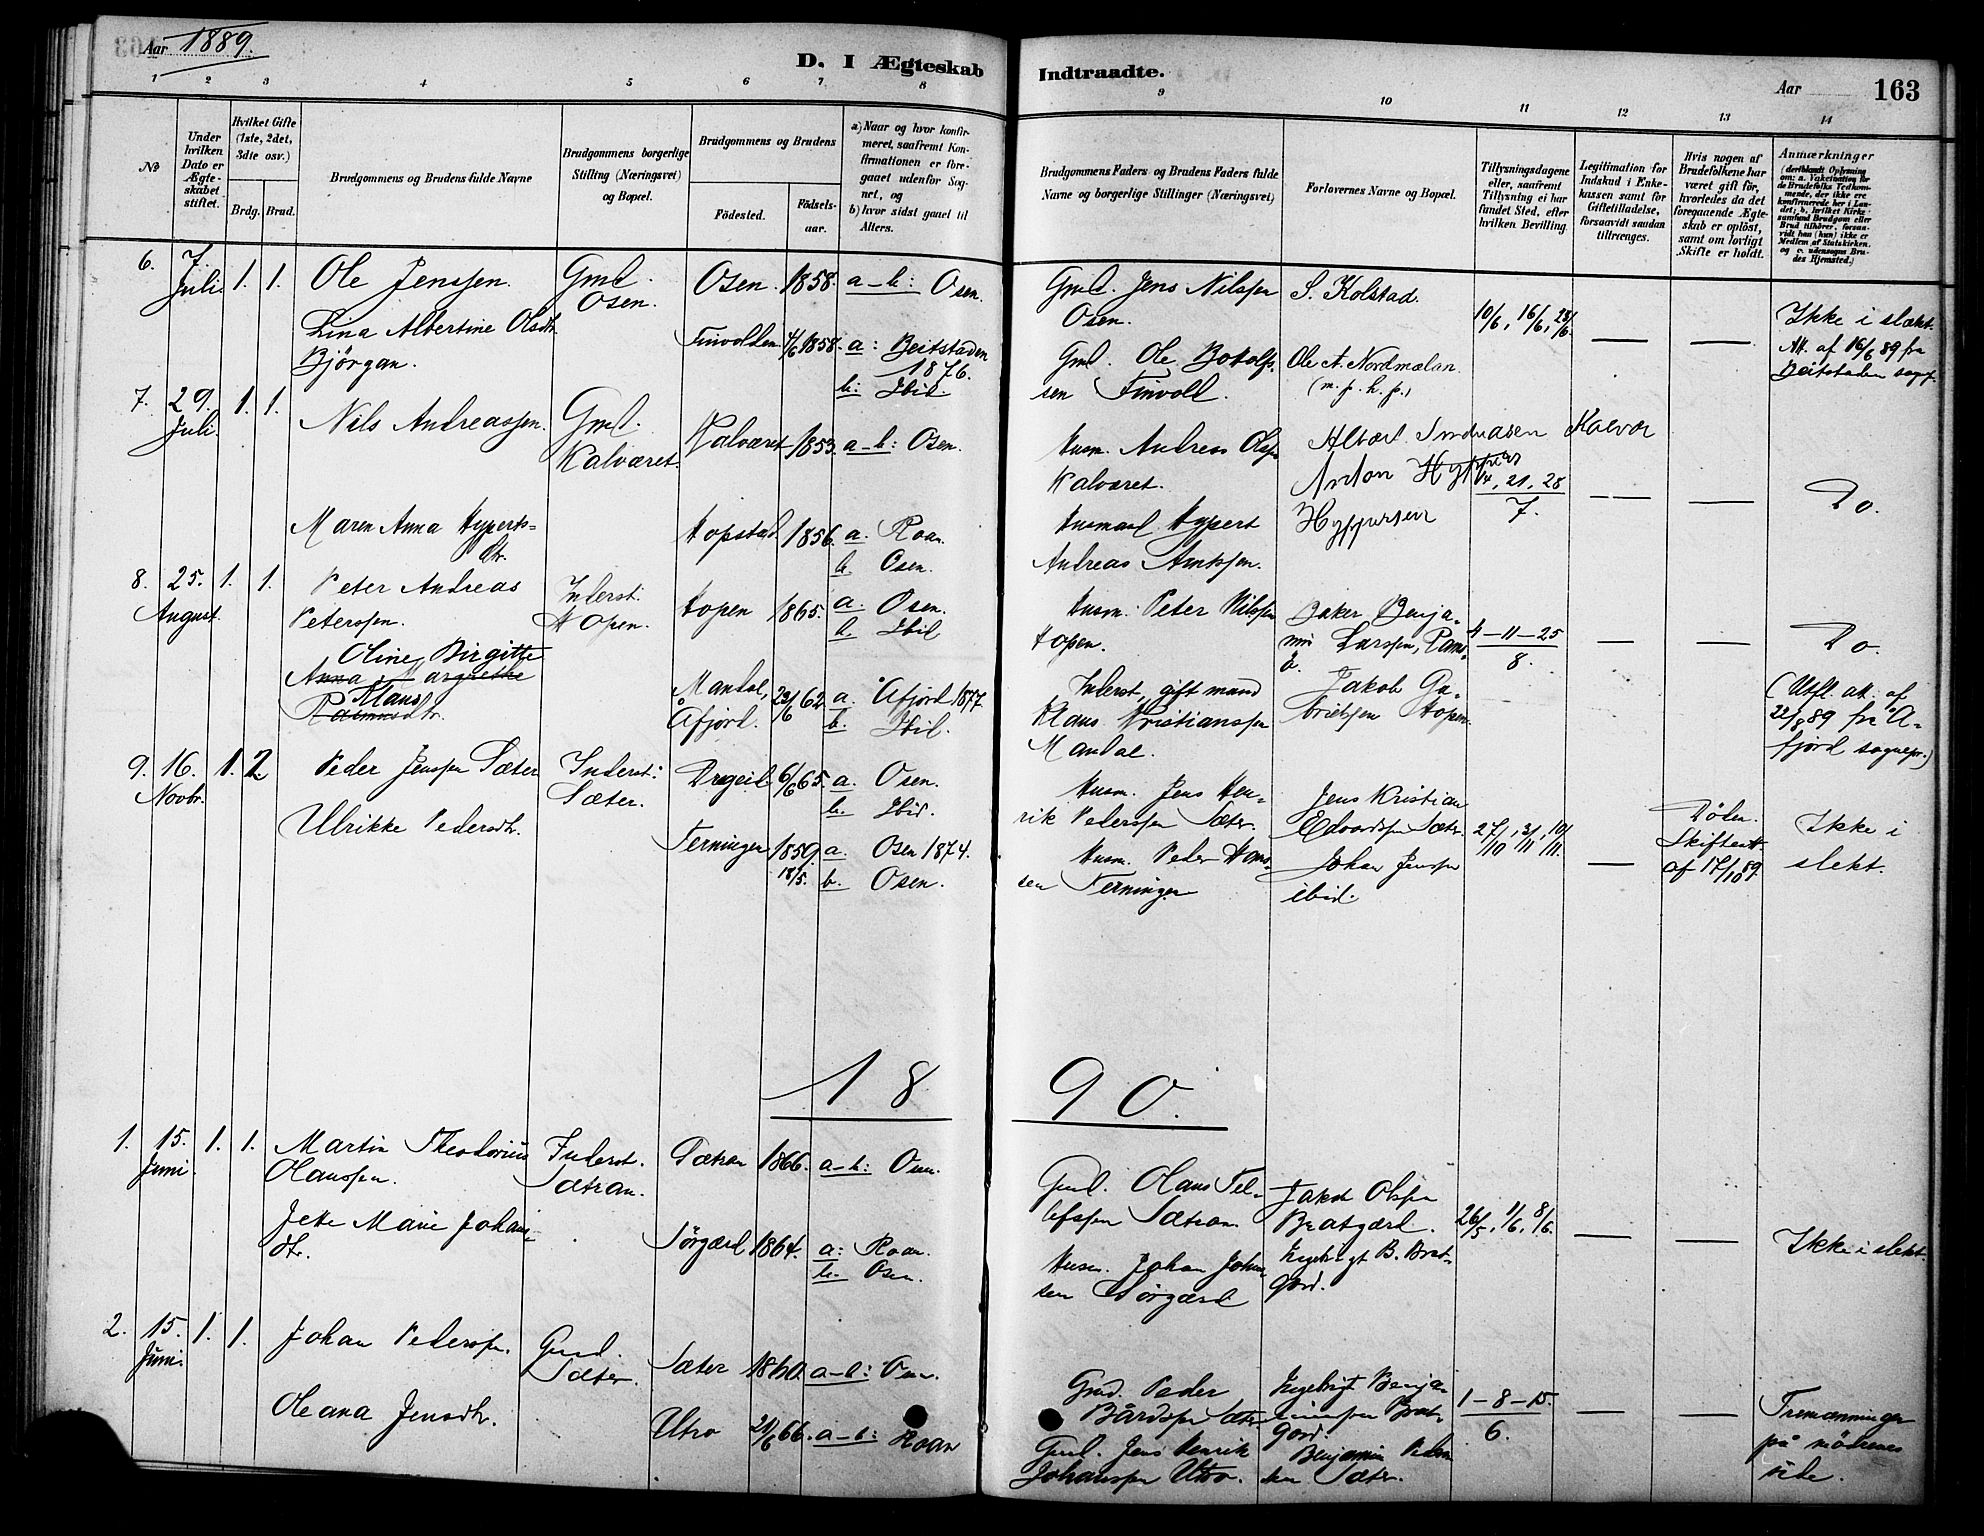 Aar 1889.
D. I Ægteskab Indtraadte.
Aar
163
1 2 3 4 5 6 7 8 9 10 11 12 13 14
No
Under hvilken Dato er Ægteskabet stiftet.
Hvilket Gifte (1ste, 2det, 3die osv.)
Brdg. Brud.
Brudgommens og Brudens fulde Navne
Brudgommens borgerlige Stilling (Næringsvei) og Bopæl.
Brudgommens og Brudens
Födested.
Födselsaar.
a) Naar og hvor konfirmeret, saafremt Konfirmationen er foregaaet udenfor Sognet, og
b) hvor sidst gaaet til Alters.
Brudgommens Faders og Brudens Faders fulde Navne og borgerlige Stillinger (Næringsvei)
Forlovernes Navne og Bopæl.
Tillysningsdagene eller, saafremt Tillysning ei har fundet Sted, efter hvilken Bevilling.
Legitimation for Indskud i Enkekassen samt for Giftetilladelse, forsaavidt saadan tiltrænges.
Hvis nogen af Brudefolkene har været gift för, hvorledes da det foregaaende Ægteskab er oplöst, samt om lovligt Skifte er holdt.
Anmærkninger
6. 7. Juli. 1. 1. Ole Jenssen. Gmd. Osen. Osen. 1858. a-b: Osen.
Gmd. Jens Nilssen Osen. S. Kolstad.
Lina Albertine Olsdtr. Bjørgan. Finvolden 4/6 1858. a: Beitstaden 1876. b: Ibid.
Gmd. Ole Botolfssen Finvoll. Ole A. Nordmælan (m. p. h. p.)
10/6, 16/6, 23/6. — — Ikke i slekt. Att. af 16/6 89 fra Beitstaden sogn.
7. 29. Juli. 1. 1. Nils Andreassen. Gmd. Kalværet. Kalværet 1853. a-b: Osen.
Husm. Andreas Olss. Kalværet.
Anton
14, 21, 28 / 7. — — Do.
Maren Anna Hypertsdtr. Hopstad 1856. a. Roan. b. Osen.
Husmand Hypert Andreas
8. 25. August. 1. 1. Peter Andreas Peterssen. Inderst. Hopen. Hopen 1865. a. Osen. b. Ibid
Husm. Peter Nilssen Hopen. Baker Benjamin Larssen,
4-11-25 / 8. — — Do.
Oline Birgitte
Anna Margrethe
Klaus
Rasmusdtr.
Mandal, Åfjord. 23/6 62 a. Åfjord 1877 b. Ibid.
Inderst, gift mand Klaus Kristianssen Mandal. Jakob Gabrielssen Hopen.
(Utfl. att. af 22/8 89 fra Åfjord sognepr.)
9. 16. Novbr. 1. 2. Peder Jenssen Sæter Inderst: Sæter. Drageid. 6/6 65. a. Osen. b. Ibid.
Husm. Jens Henrik Pederssen Sæter. Jens Kristian Edvardssen Sæter.
27/10, 3/11, 10/11. — Døden. Skifteatt. af 17/10 89. Ikke i slekt.
Ulrikke Pedersdtr. Terningen 1859. 18/5. a. Osen 1874. b. Osen.
Husm. Peder Hanssen Terningen Johan Jenssen ibid.
1890.
1. 15. Juni. 1. 1. Martin Theodorius Olaussen. Inderst. Sætran. Sætran 1866. a-b: Osen.
Gmd. Olaus Tellefssen Sætran. Jakob Olssen Bratgærd.
26/5, 1/6, 8/6. — — Ikke i slekt.
Jette Marie Johansdtr. Sørgærd 1864. a: Roan. b. Osen.
Husm. Johan Johansen Sørgærd Ingebrigt B. Bratgord.
2. 15. Juni. 1. 1. Johan Pederssen. Gmd. Sæter. Sæter 1860. a-b: Osen.
Gmd. Peder Bårdssen Sæter Ingebrigt Benjaminssen Bratgord.
1-8-15. / 6. — — Tremænninger på mødrenes side.
Oleana Jensdtr. Utro 24/6 66. a-b: Roan
Gmd. Jens Henrik Johanssen Utro. Benjamin Pedersen Sæter.